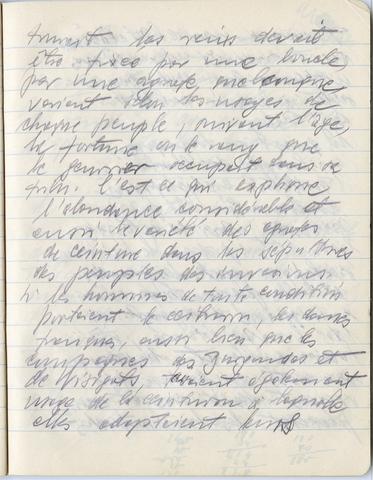 les reins devait
être fixé par une boucle,
par une agrafe, quelconque
variant selon des usages de
chaque peuple, suivant l'âge,
la fortune ou le rang que
le guerrier occupait dans sa
tribu. C'est ce qui explique
l'abondance considérable et
aussi la variété des agrafes
de ceinture dans les sépultures
des peuples des invasions
Si les hommes de toute condition
portaient le ceinturon, les dames
franques, aussi bien que les
compagnes des Burgondes et
de Wisigots, également
usage de la ceinturon à laquelle
elles adaptaient leurs